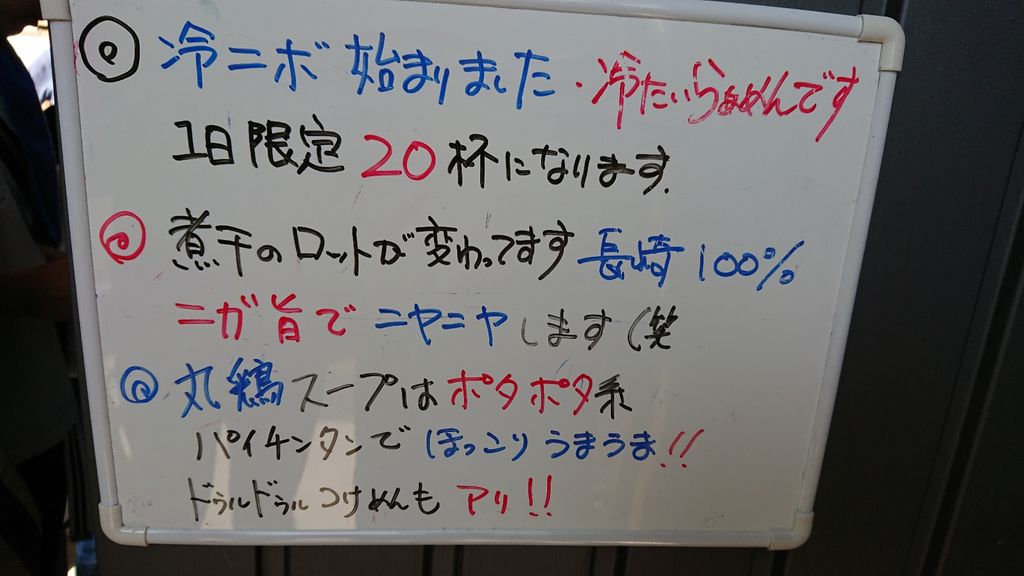 ◎ 冷ニボ 始まりました・冷たいらぁめんです
1日限定 20杯になります.
◎ 煮干のロットが変わってます 長崎100%
ニガ旨で ニヤニヤします(笑
◎ 丸鶏スープはポタポタ系
パイチンタンで ほっこりうまうま!!
ドゥルドゥルつけめんも アリ!!